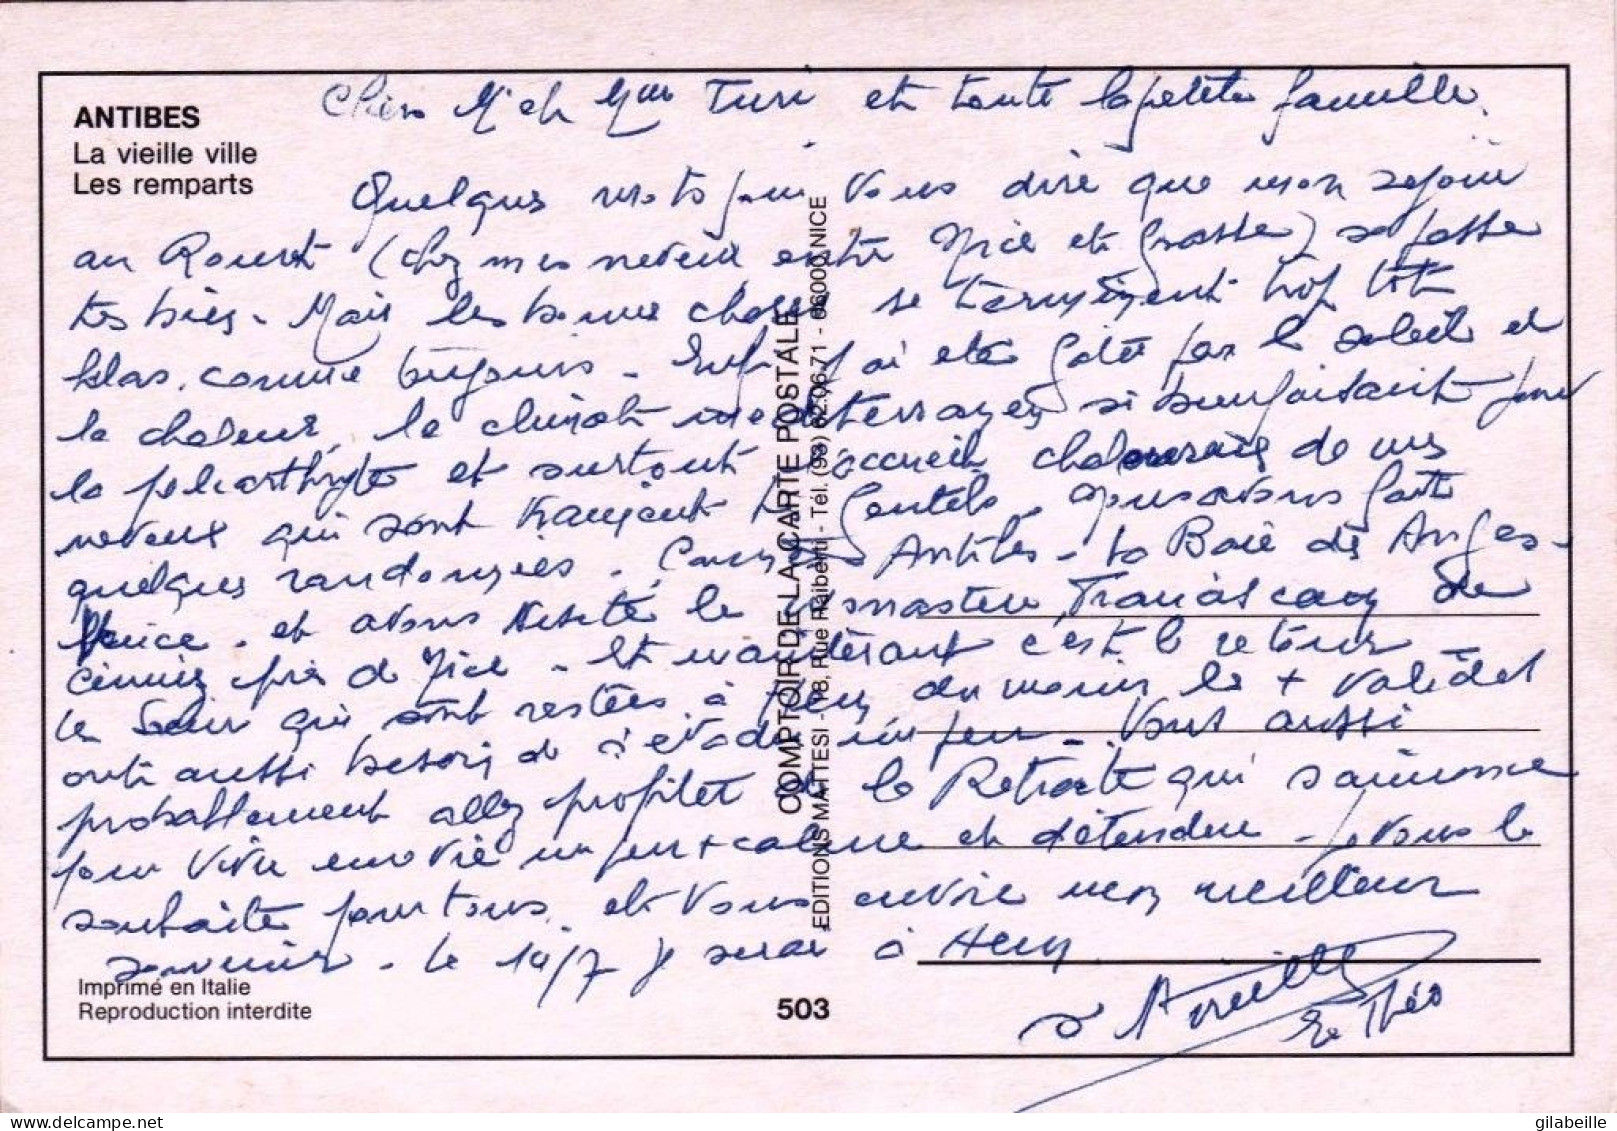 ANTIBES
La vieille ville
Les remparts
Chers Mr et Mme Turi et toute la petite famille.
Quelques mots pour vous dire que mon sejour
au Rouret (chez mes neveux entre Nice et Grasse) se passe
tres bien - Mais les bonnes choses se terminent trop tôt
hélas. comme toujours - Enfin j'ai eté gatée par le soleil et
la chaleur, le climat mediterranéen si bienfaisant pour
la et surtout l'accueil chaleureux de mes
neveux qui sont vraiment tres gentils - nous avons fait
quelques randonnées. Cannes Antibes - la Baie des Anges -
Venice - et avons visité le monastere Franciscain de
Cimiez près de Nice - Et maintenant c'est le retour
les Soeurs qui sont restées à du moins les + valides
ont aussi besoin de s'evader un peu - Vous aussi
probablement allez profiter de la Retraite qui s'annonce
pour vivre une vie un peu + calme et détendue - je vous le
souhaite pour tous et vous envoie mon meilleur
souvenir - Le 14/7 je serai à
COMPTOIR DE LA CARTE POSTALE
EDITIONS MATTESI - 18, Rue Raiberti - Tél. (93) 62.06.71 - 06000 NICE
Imprimé en Italie
Reproduction interdite
503
gilabeille